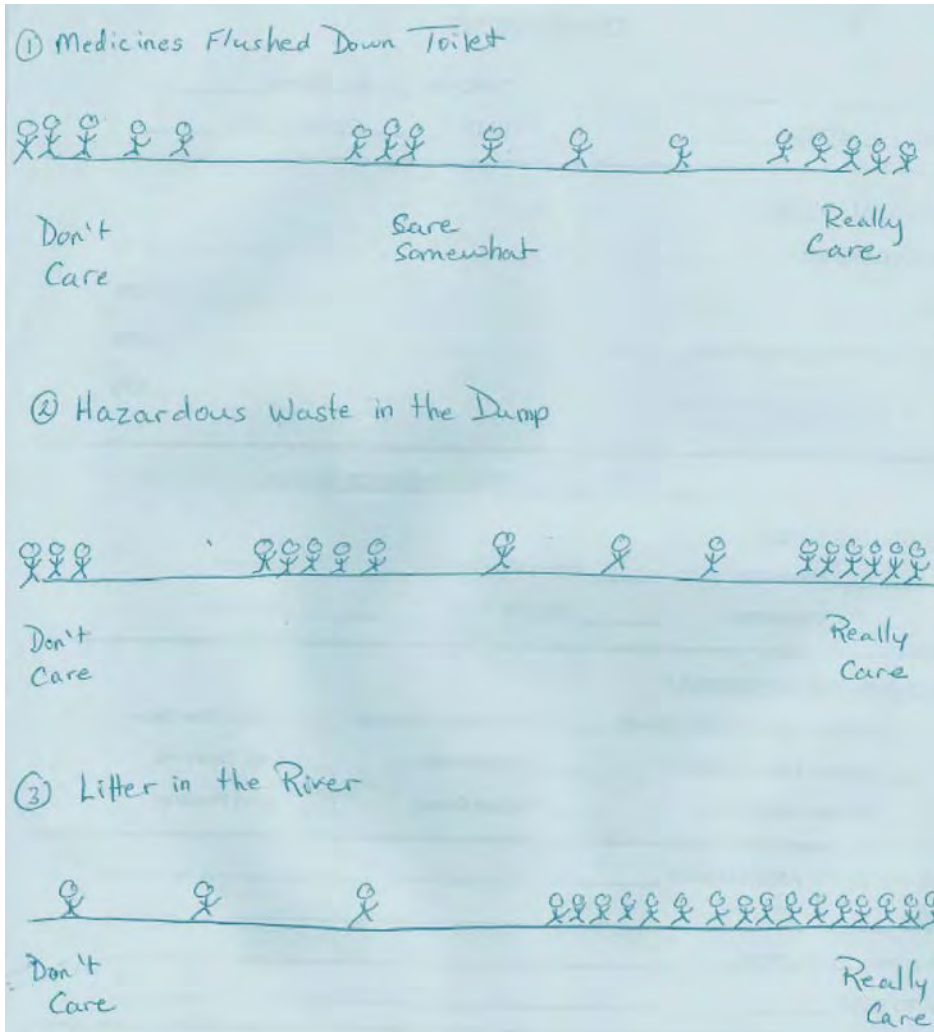 ① Medicines Flushed Down Toilet
Don't
Care
Care
Somewhat
Really
Care
② Hazardous Waste in the Dump
Don't
Care
Really
Care
③ Litter in the River
Don't
Care
Really
Care